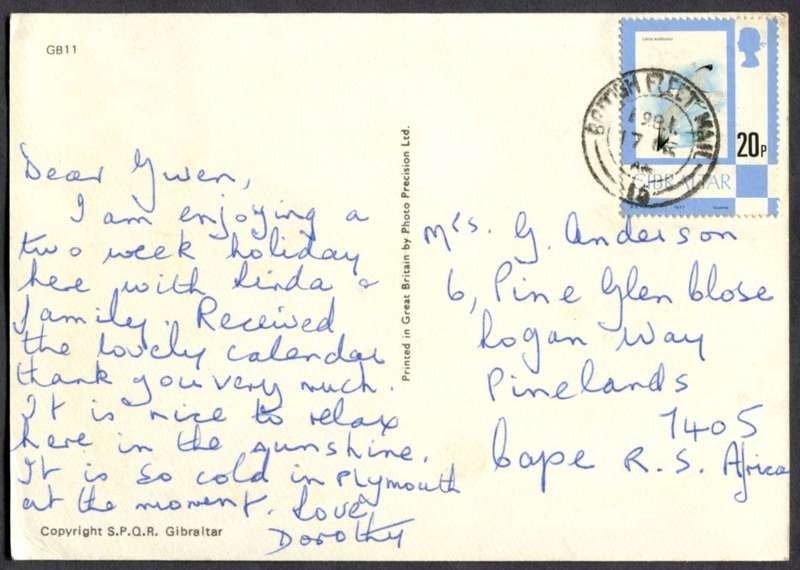 GB11
Dear Gwen,
I am enjoying a
two week holiday
here with Linda &
family. Received
the lovely calendar
thank you very much.
It is nice to relax
here in the sunshine.
It is so cold in Plymouth
at the moment. Love,
Dorothy
Copyright S.P.Q.R. Gibraltar
Printed in Great Britain by Photo Precision Ltd.
BRITISH FLEET MAIL
1981
17
20P
GIBRALTAR
Mrs. G. Anderson
6, Pine Glen Close
Logan Way
Pinelands
7405
Cape R. S. Africa